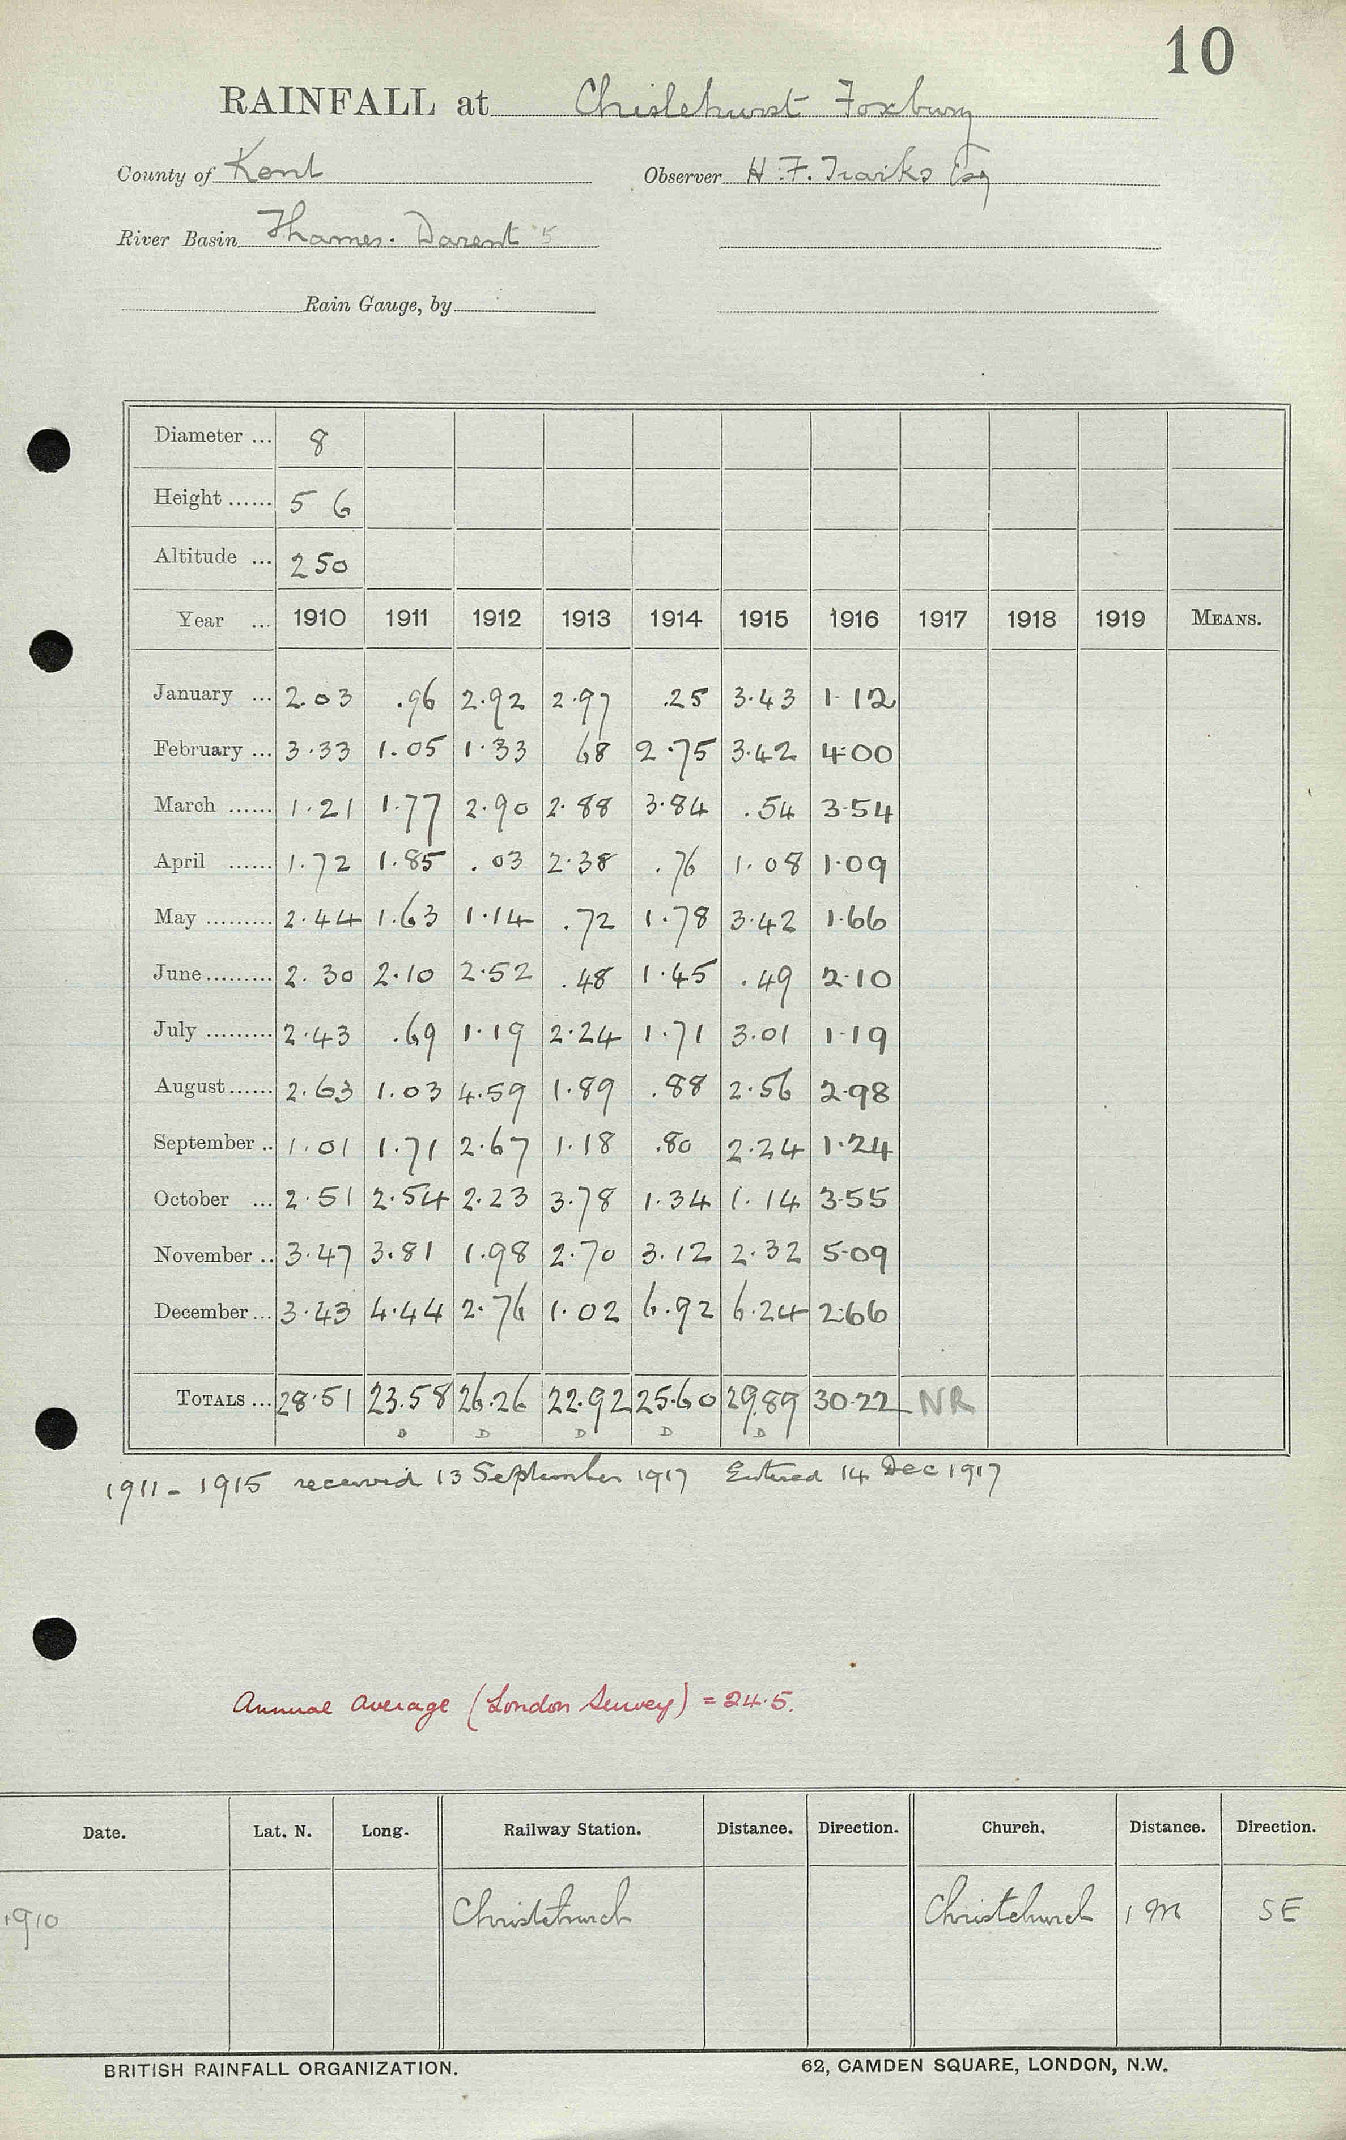 10
RAINFALL at Chislehurst Foxbury
County of Kent Observer H. F. Esq
River Basin Thames. Darent 5
Rain Gauge, by
Diameter ... 8
Height ...... 5 6
Altitude ... 250
Year ... 1910 1911 1912 1913 1914 1915 1916 1917 1918 1919 MEANS.
January ... 2.03 .96 2.92 2.97 .25 3.43 1.12
February ... 3.33 1.05 1.33 68 2.75 3.42 4.00
March ...... 1.21 1.77 2.90 2.88 3.84 .54 3.54
April ...... 1.72 1.85 .03 2.38 .76 1.08 1.09
May ......... 2.44 1.63 1.14 .72 1.78 3.42 1.66
June ......... 2.30 2.10 2.52 .48 1.45 .49 2.10
July ......... 2.43 .69 1.19 2.24 1.71 3.01 1.19
August ...... 2.63 1.03 4.59 1.89 .88 2.56 2.98
September .. 1.01 1.71 2.67 1.18 .80 2.24 1.24
October ... 2.51 2.54 2.23 3.78 1.34 1.14 3.55
November .. 3.47 3.81 1.98 2.70 3.12 2.32 5.09
December ... 3.43 4.44 2.76 1.02 6.92 6.24 2.66
TOTALS ... 28.51 23.58 26.26 22.92 25.60 29.89 30.22 NR
D D D D D
1911 - 1915 received 13 September 1917 Entered 14 Dec 1917
Annual average (London Survey) = 24.5.
Date. Lat. N. Long. Railway Station. Distance. Direction. Church. Distance. Direction.
1910 Christchurch Christchurch 1 m SE
BRITISH RAINFALL ORGANIZATION. 62, CAMDEN SQUARE, LONDON, N.W.